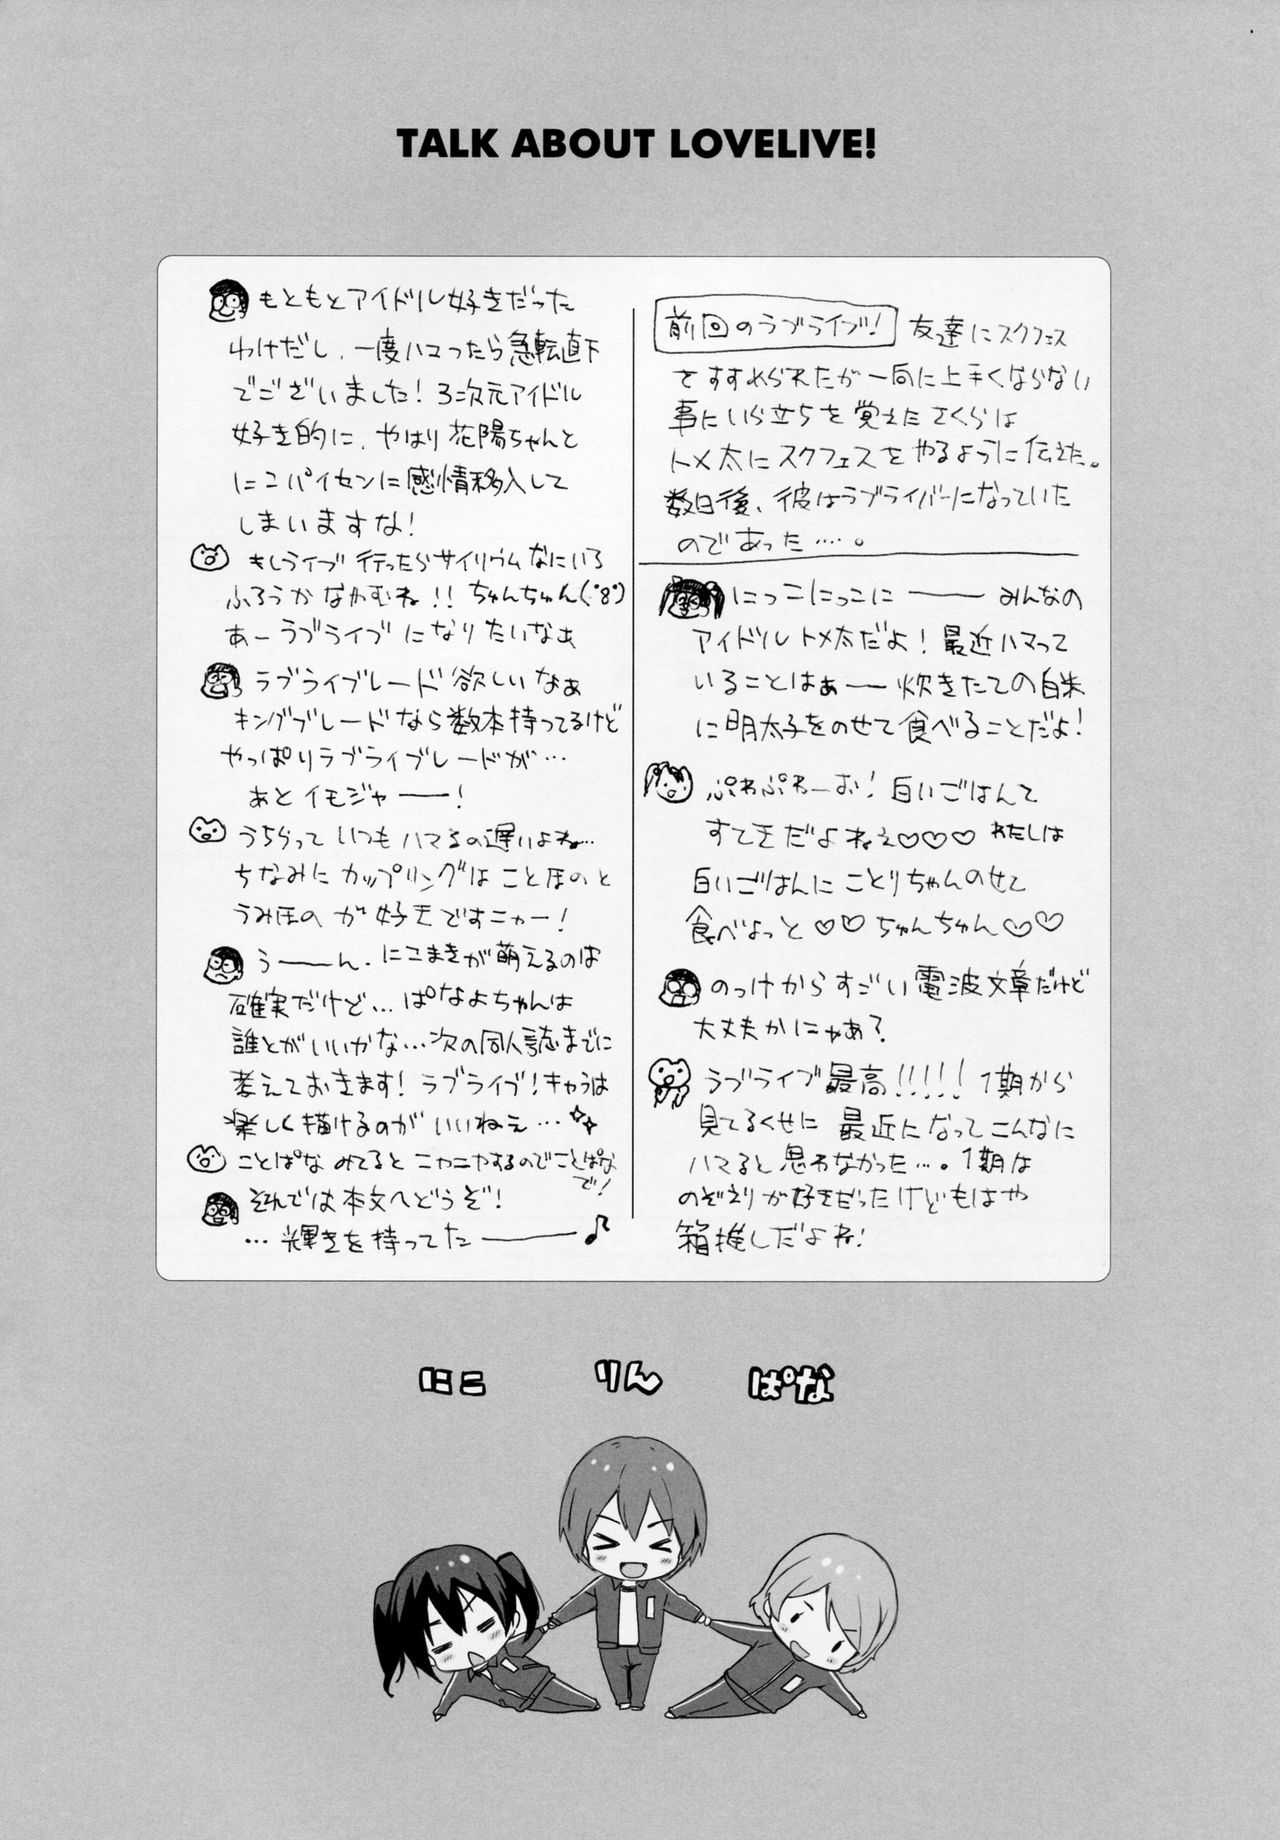 TALK ABOUT LOVELIVE!
前回のラブライブ! 友達にスクフェス
をすすめられたが一向に上手くならない
事にいら立ちを覚えたさくらは
トメ太にスクフェスをやるように伝えた。
数日後、彼はラブライバーになっていた
のであった‥‥。
にっこにっこにーー みんなの
アイドルトメ太だよ!最近ハマって
いることはぁーー炊きたての白米
に明太子をのせて食べることだよ!
ぷわぷわーお!白いごはんて
すてきだよねぇ♡♡♡ わたしは
白いごはんにことりちゃんのせて
食べよっと♡♡ちゅんちゅん♡♡
のっけからすごい電波文章だけど
大丈夫かにゃぁ?
ラブライブ最高!!!!! 1期から
見てるくせに 最近になってこんなに
ハマると思わなかった…。1期は
のぞえりが好きだったけどもはや
箱推しだよね!
もともとアイドル好きだった
わけだし、一度ハマったら急転直下
でございました!3次元アイドル
好き的に、やはり花陽ちゃんと
にこパイセンに感情移入して
しまいますな!
もしライブ行ったらサイリウムなにいろ
ふろうかなかむね!!ちゅんちゅん(・8・)
あーラブライブになりたいなぁ
ラブライブレード欲しいなぁ
キングブレードなら数本持ってるけど
やっぱりラブライブレードが…
あとイモジャーー!
うちらっていつもハマるの遅いよね…
ちなみにカップリングはことほのと
うみほのが好きですニャー!
うーーん、にこまきが萌えるのは
確実だけど…ぱなよちゃんは
誰とがいいかな…次の同人誌までに
考えておきます!ラブライブ!キャラは
楽しく描けるのがいいねぇ…
ことぱなみてるとニヤニヤするのでことぱな
で!
それでは本文へどうぞ!
…輝きを持ってたーー♪
にこ りん ぱな